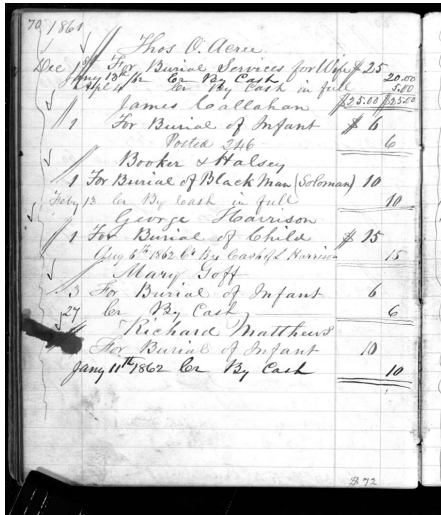 70 1861
Thos O. Acree
Dec 1st For Burial Services for Wife $25
Jany 13th /62 Cr By Cash 20.00
Apl 4 Cr By Cash in full 5.00
$25.00 $25.00
James Callahan
1 For Burial of Infant $6
Posted 246 6
Booker & Halsey
1 For Burial of Black Man (Soloman) 10
Feby 13 Cr By Cash in full 10
George Harrison
1 For Burial of Child $15
Aug 6th 1862 Cr By Cash Harrison 15
Mary Goff
3 For Burial of Infant 6
27 Cr By Cash 6
Richard Matthews
For Burial of Infant 10
Jany 11th 1862 Cr By Cash 10
$72